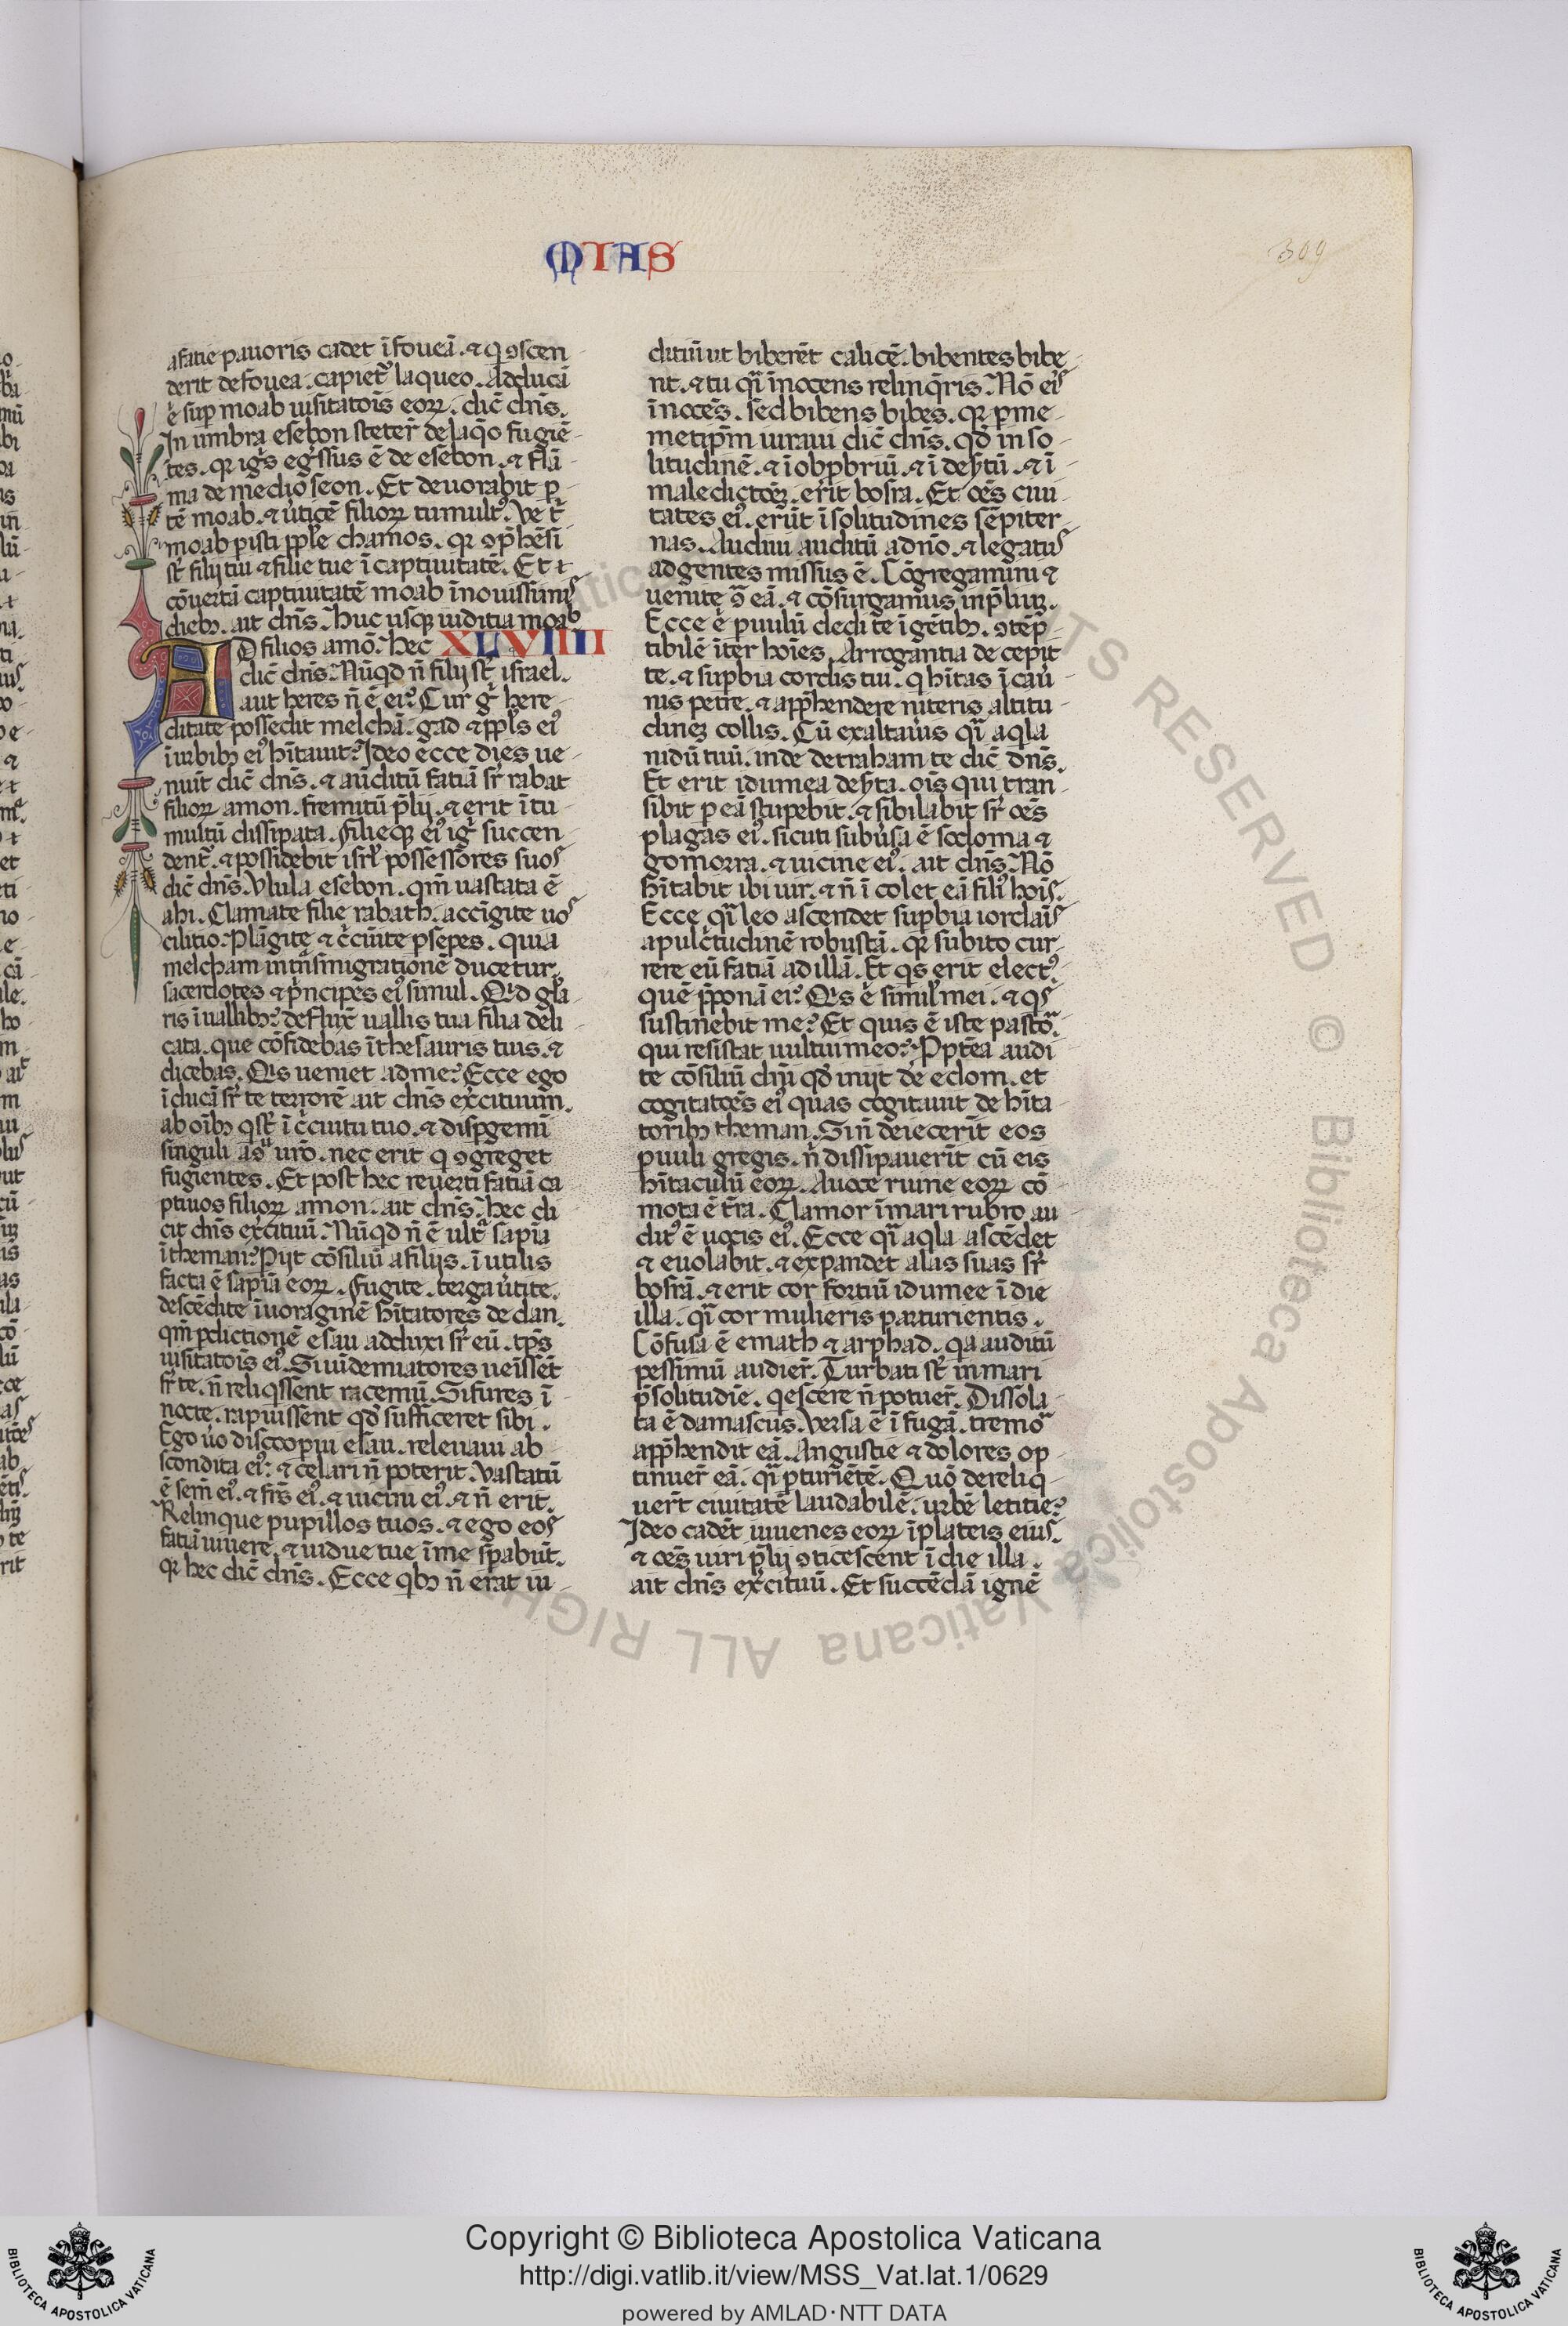 MIAS
309
afatie pauoris cadet ĩ foueã. ⁊ q̣ ꝯscen-
derit de fouea. capiet᷑ laqueo. Adducã
ẽ suꝑ moab uisitatiõis eoꝝ. dic̃ dñs.
In umbra esebon steter̃ de laq̊o fugiẽ-
tes. qꝛ ig̃s eg̃ssus ẽ de esẽbon. ⁊ flã-
ma de medio seon. Et deuorabit ꝑ-
tẽ moab. ⁊ ũticẽ filioꝝ tumult᷒. Ve t᷑
moab ꝑisti pp̃le chamos. qꝛ ꝯp̃hẽsi
st̃ filij tui ⁊ filie tue ĩ captiuitatẽ. Et ⁊
cõuertã captiuitatẽ moab ĩ nouissimis
dieb᷒. ait dñs. Huc usqꝫ iuditia moab
AD filios amõ. Hec XLVIIII
dic̃ dñs. Nũqd ñ filij st̃ israel.
aut heres ñ ẽ ei? Cur g̃ here-
ditate possedit melchã. gad ⁊ pp̃ls ei᷒
ĩ urbib᷒ ei᷒ hĩtauit? Ideo ecce dies ue-
niũt dic̃ dñs. ⁊ auditũ fatiã sr̃ rabat
filioꝝ amon. fremitũ p̃lij. ⁊ erit ĩ tu-
multũ dissipata. filieqꝫ ei᷒ ig̃ succen-
dent᷑. ⁊ possidebit isr̃l possessores suos
dic̃ dñs. Vlula esebon. qm̃ uastata ẽ
ahi. Clamate filie rabath. accĩgite uos
cilitio. Plãgite ⁊ c̃cuite ꝑ sepes. quia
melcham in trñsmigrationẽ ducetur.
sacerdotes ⁊ p̃ncipes ei᷒ simul. Qid gl̃a-
ris ĩ uallib᷒? defluxẽ uallis tua filia deli-
cata. que cõfidebas ĩ thesauris tuis. ⁊
dicebas. Qis ueniet ad me? Ecce ego
ĩ ducã sr̃ te terrorẽ ait dñs exc̃ituum.
ab oĩb᷒ q̣ st̃ ĩ c̃cuitu tuo. ⁊ disꝑgemĩ
singuli a ɔspectu ur̃o. nec erit q̣ ꝯgreget
fugientes. Et post hec reuerti fatiã ca-
ptiuos filioꝝ amon. ait dñs. Hec di-
cit dñs exc̃ituũ. Nũqd ñ ẽ ult᷑ sapĩa
ĩ theman? Pijt cõsiliũ a filijs. ĩ utilis
facta ẽ sapĩa eoꝝ. Fugite. terga ũtite.
descẽdite ĩ uoraginẽ hĩtatores dedan.
qm̃ ꝑditionẽ esau adduxi sr̃ eũ. tp̃s
uisitatiõis ei᷒. Si uĩdemiatores ueĩssẽt
sr̃ te. ñ reliq̣ssent racemũ. Si fures ĩ
nocte. rapuissent qd̃ sufficeret sibi.
Ego ũo discoopui esau. releuaui ab-
scondita ei᷒. ⁊ celari ñ poterit. Vastatũ
ẽ sem̃ ei᷒. ⁊ fr̃s ei᷒. ⁊ uicini ei᷒. ⁊ ñ erit.
Relinque pupillos tuos. ⁊ ego eos
fatiã uiuere. ⁊ uidue tue ĩ me sꝑabũt.
qꝛ hec dic̃ dñs. Ecce qb᷒ ñ erat iu-
ditiũ ut biberẽt calicẽ. bibentes bibe-
nt. ⁊ tu q̃i ĩnocens relinq̃ris. Nõ eis
ĩnocẽs. sed bibens bibes. qꝛ ꝑ me-
metip̃m iuraui dic̃ dñs. qd̃ in so-
litudinẽ. ⁊ ĩ obp̃briũ. ⁊ ĩ deẽtũ. ⁊ ĩ
maledictõeꝫ. erit bosra. Et oẽs ciui-
tates ei᷒. erũt ĩ solitudines sẽpiter-
nas. Audiui auditũ a dño. ⁊ legatus
ad gentes missus ẽ. Cõgregamini ⁊
uenite ꝯ̃ eã. ⁊ cõsurgamus in p̃liuꝫ.
Ecce ẽ paruulũ dedi te ĩ gẽtib᷒. ꝯtẽp-
tibilẽ ĩter hoĩes. Arrogantia decepit
te. ⁊ suꝑbia cordis tui. q̣ hĩtas ĩ cau̾-
nis petre. ⁊ app̃hendere niteris altitu-
dineꝫ collis. Cũ exaltau̾is q̃i aq̣la
nidũ tuũ. inde detraham te dic̃ dñs.
Et erit idumea deẽta. oĩs qui tran-
sibit ꝑ eã stupebit. ⁊ sibilabit sr̃ oẽs
plagas ei᷒. sicuti subũsa ẽ sodoma ⁊
gomorra. ⁊ uicine ei᷒. ait dñs. Nõ
hĩtabit ibi uir. ⁊ ñ ĩ colet eã fili᷒ hoĩs.
Ecce q̃i leo ascendet suꝑbia iordãis
a pulc̃tudinẽ robustã. qꝛ subito cur-
rere eũ fatiã ad illã. Et q̣s erit elect᷒.
quẽ p̃ponã ei? Qis ẽ simil̃ mei. ⁊ q̣s
sustinebit me? Et quis ẽ iste pastor
qui resistat uultui meo? Ppt̃ea audi-
te cõsiliũ dñi qd̃ inijt de edom. et
cogitatõẽs ei᷒ quas cogitauit de hĩta-
torib᷒ theman. Si ñ deiecerĩt eos
paruuli gregis. ñ dissipauerĩt cũ eis
hĩtaculũ eoꝝ. A uoce ruine eoꝝ cõ-
mota ẽ t̃ra. Clamor ĩ mari rubro au-
dit᷒ ẽ uocis ei᷒. Ecce q̃i aq̣la ascẽdet
⁊ euolabit. ⁊ expandet alas suas sr̃
bosrã. ⁊ erit cor fortiũ idumee ĩ die
illa. q̃i cor mulieris parturientis.
Cõfusa ẽ emath ⁊ arphad. q̣a auditũ
pessimũ audier̃. Turbati st̃ in mari
p̃ solitudĩe. q̣escere ñ potuer̃. Dissolu-
ta ẽ damascus. Versa ẽ ĩ fugã. tremor
app̃hendit eã. Angustie ⁊ dolores op-
tinuer̃ eã. q̃i ꝑturiẽtẽ. Quõ dereliq̣-
uert̃ ciuitatẽ laudabilẽ. urbẽ letitie?
Ideo cadẽt iuuenes eoꝝ ĩ plateis eius.
⁊ oẽs uiri p̃lij ꝯticescent ĩ die illa.
ait dñs exc̃ituũ. Et succẽdã ignẽ
Copyright © Biblioteca Apostolica Vaticana
http://digi.vatlib.it/view/MSS_Vat.lat.1/0629
powered by AMLAD · NTT DATA
BIBLIOTECA APOSTOLICA VATICANA
BIBLIOTECA APOSTOLICA VATICANA
ALL RIGHTS RESERVED © Biblioteca Apostolica Vaticana